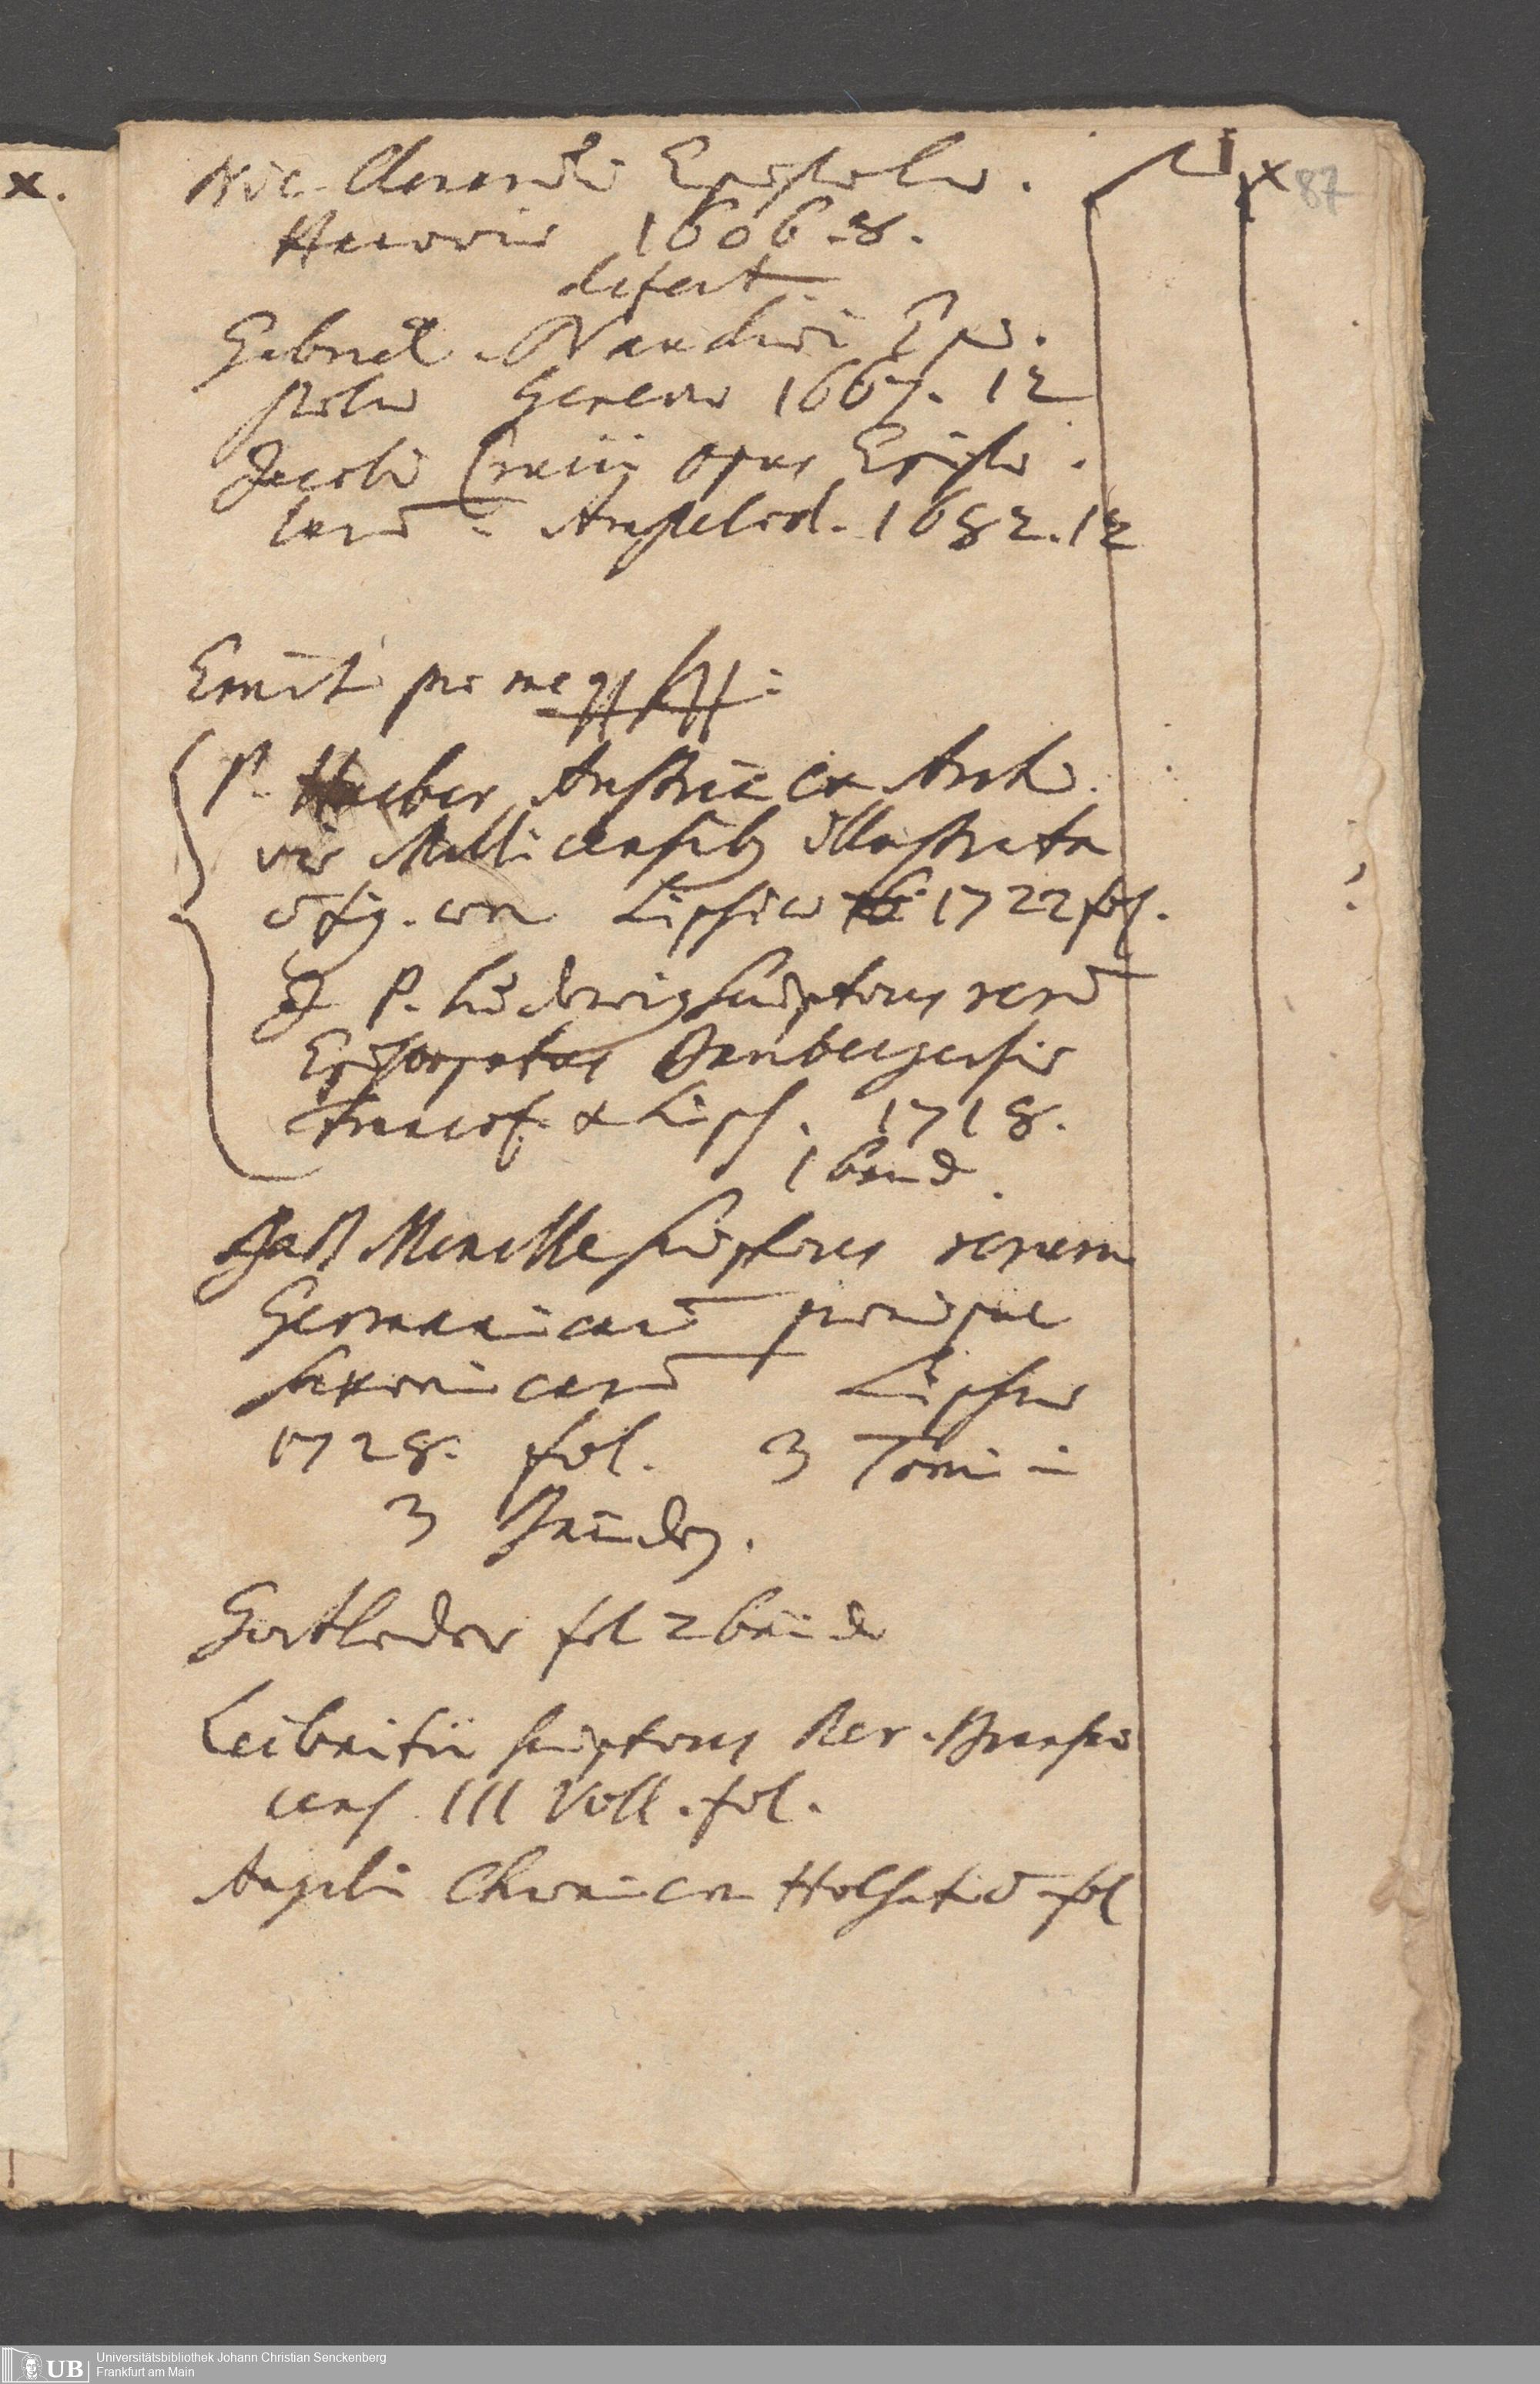 x.
Nic. Clenardi Epistolae.
Hanoviae 1606. 8.
defect
87
Gabriel. Naudaei Epi.
stolae Genevae 1667. 12
Jacobi Crucii opus Episto.
larū Amstelod. 1682. 12
Emit pro me
P. Hueber Austria ex Archi.
vis Mellicensibq illustrata
c fig. aen Lipsiae 1722 fol.
J P. Ludewig Scriptores rerū
Episcopatus Bambergensis
Francof. & Lips. 1718.
1 band.
Menckke Scriptores rerum
Germanicarū praecipue
Saxonicarū Lipsiae
1728. fol. 3 Tomi in
3 Bänden.
Hortleder fol 2 bände
Leibnitii Scriptores Rer. Brunsvi
cens. III Voll. fol.
Angeli Chronicon Holsatiae fol
UB
Universitätsbibliothek Johann Christian Senckenberg
Frankfurt am Main